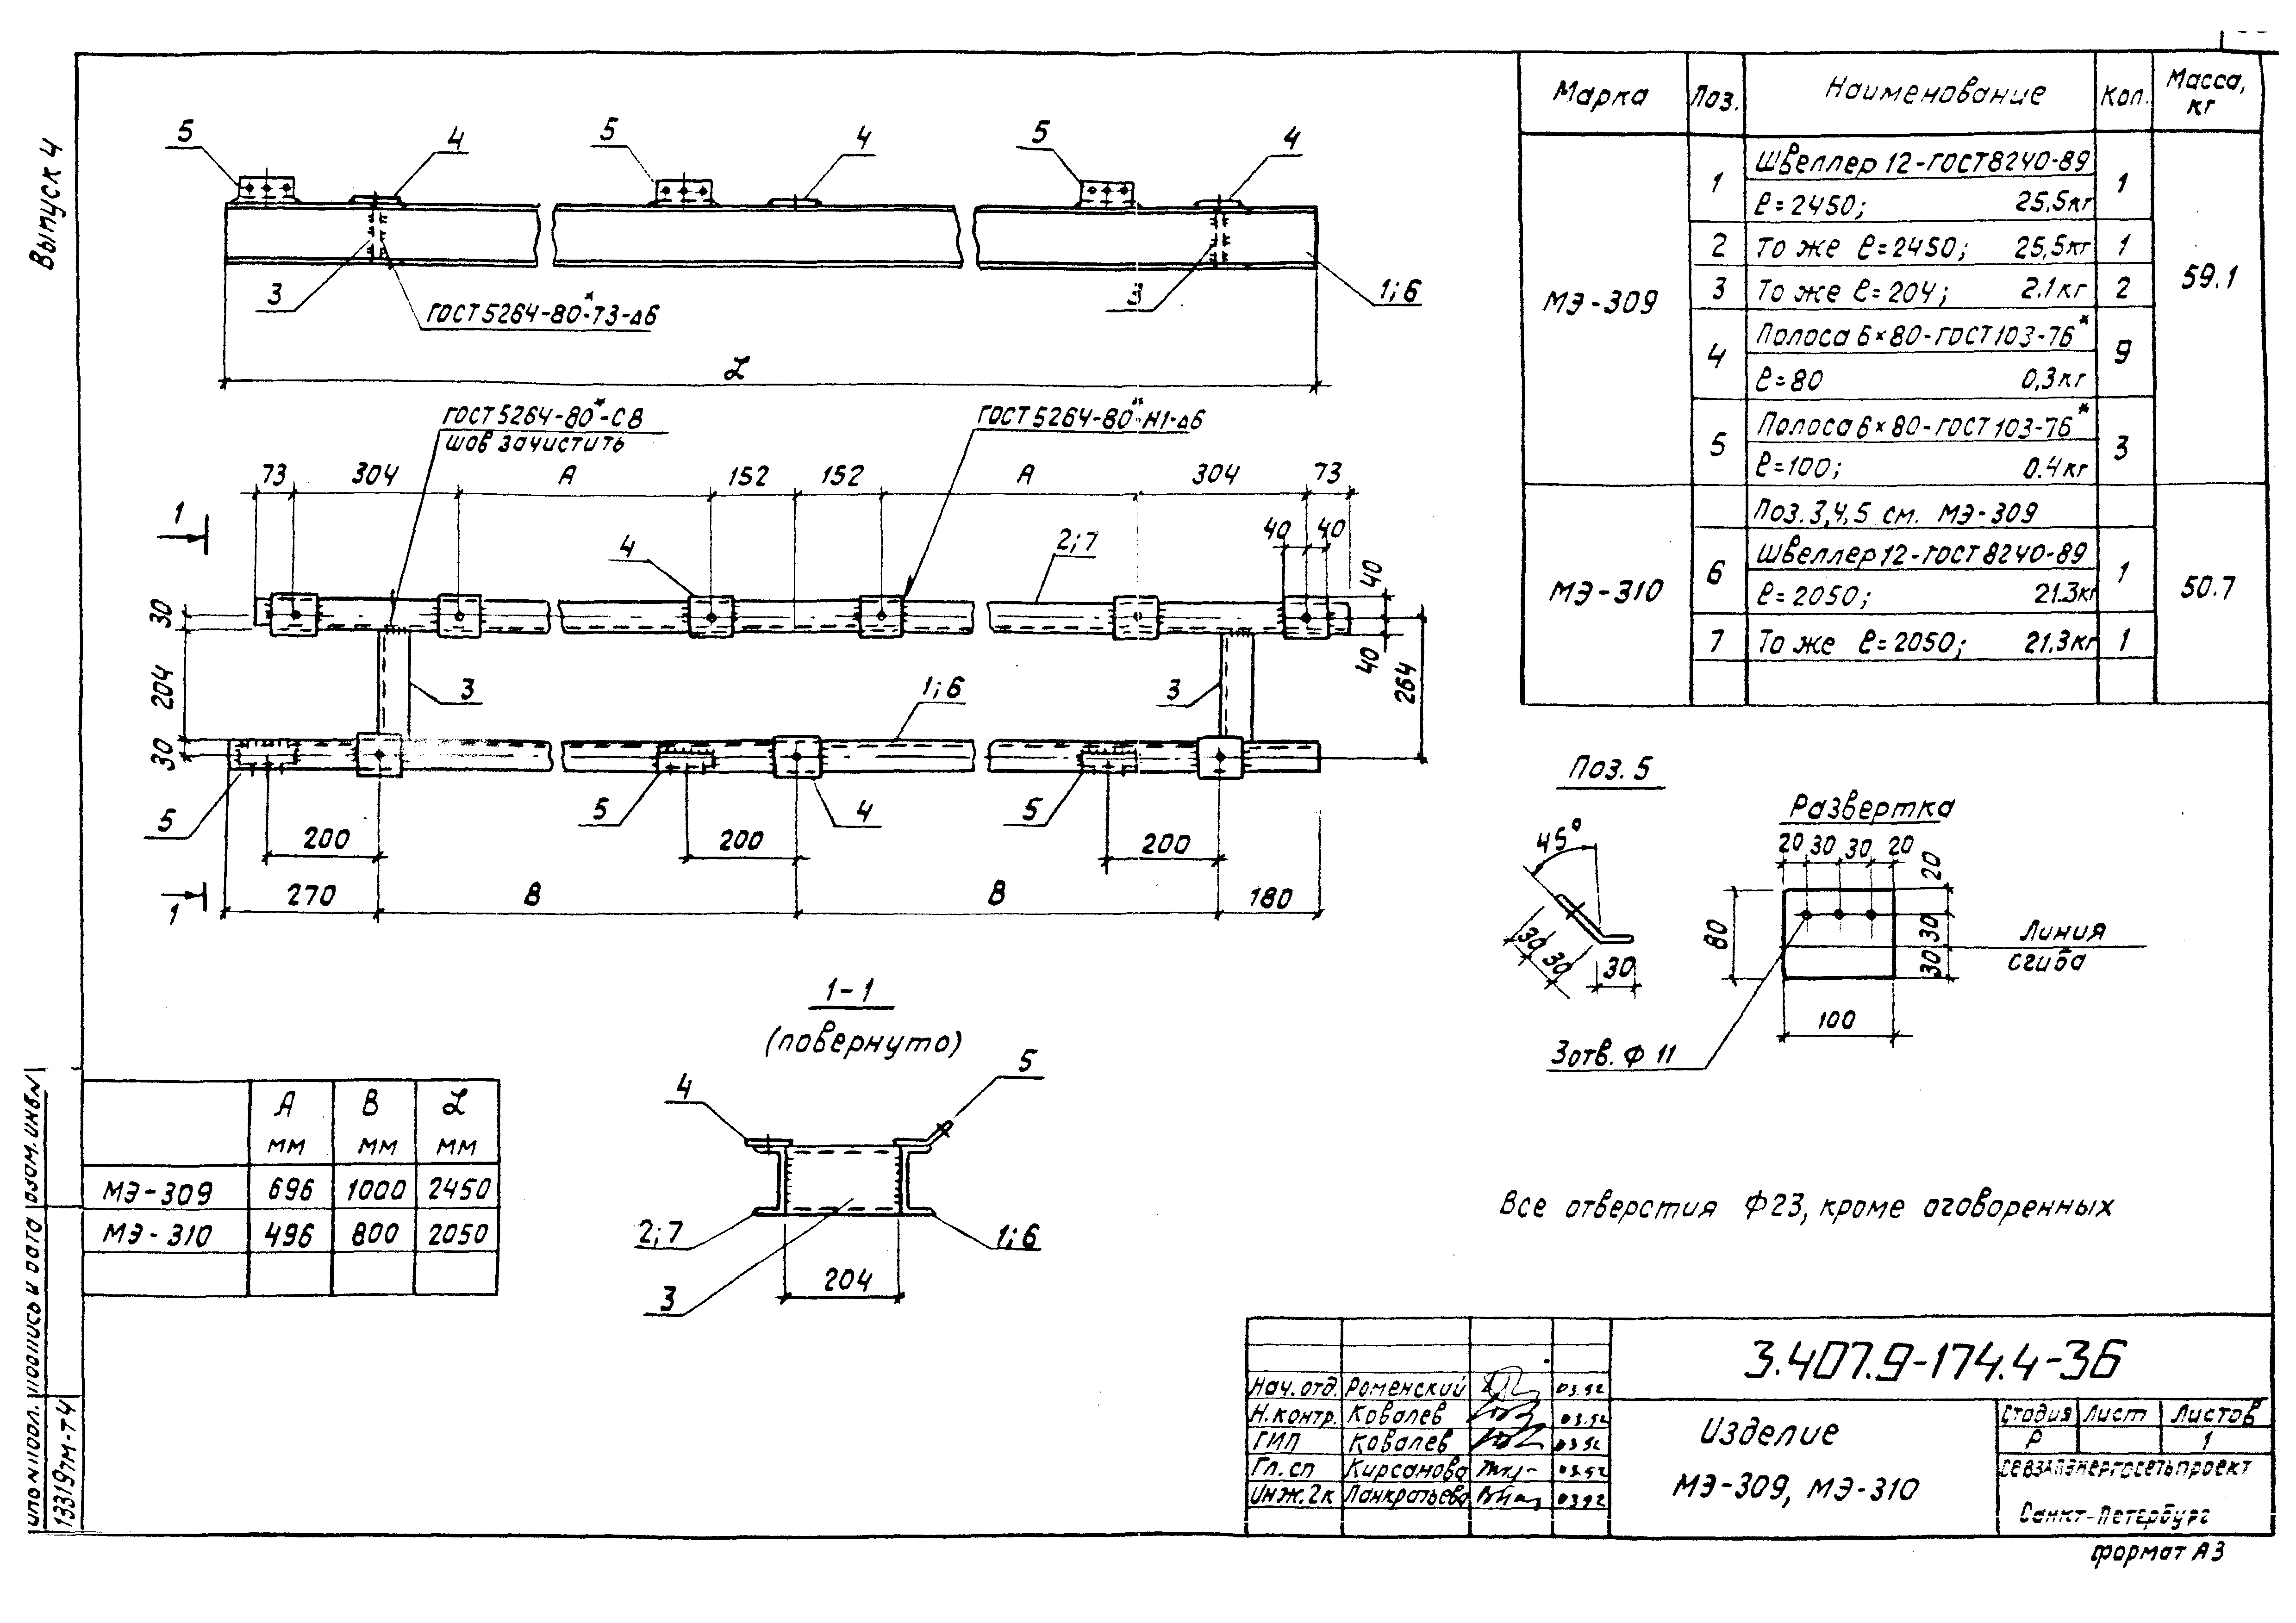 Выпуск 4
5
4
5
4
5
4
3
ГОСТ 5264-80*-Т3-Δ6
3
1;6
L
ГОСТ 5264-80*-С8
шов зачистить
ГОСТ 5264-80*-Н1-Δ6
73
304
А
152
152
А
304
73
1
40
40
4
2;7
30
204
30
40
40
264
3
1;6
3
5
5
4
5
200
200
200
1
270
В
В
180
Марка
Поз.
Наименование
Кол.
Масса, кг
МЭ-309
1
Швеллер 12-ГОСТ 8240-89
ℓ=2450; 25,5кг
1
59.1
2
То же ℓ=2450; 25,5кг
1
3
То же ℓ=204; 2.1кг
2
4
Полоса 6×80-ГОСТ 103-76*
ℓ=80 0,3кг
9
5
Полоса 6×80-ГОСТ 103-76*
ℓ=100; 0.4кг
3
МЭ-310
Поз. 3,4,5 см. МЭ-309
6
Швеллер 12-ГОСТ 8240-89
ℓ=2050; 21.3кг
1
50.7
7
То же ℓ=2050; 21.3кг
1
Поз. 5
45°
30
30
30
Развертка
20 30 30 20
20
30
30
80
100
Линия
сгиба
3 отв. Ф 11
1-1
(повернуто)
4
5
2;7
1;6
3
204
А мм
В мм
L мм
МЭ-309 696 1000 2450
МЭ-310 496 800 2050
Все отверстия Ф23, кроме оговоренных
3.407.9-174.4-36
Нач. отд. Роменский 03.92
Н. контр. Ковалев 03.92
ГИП Ковалев 03.92
Гл. сп Кирсанова 03.92
Инж. 2к Панкратьева 03.92
Изделие
МЭ-309, МЭ-310
Стадия Лист Листов
Р 1
Севзапэнергосетьпроект
Санкт-Петербург
формат А3
Инв № подл. Подпись и дата Взам. инв. №
13319тм-т4